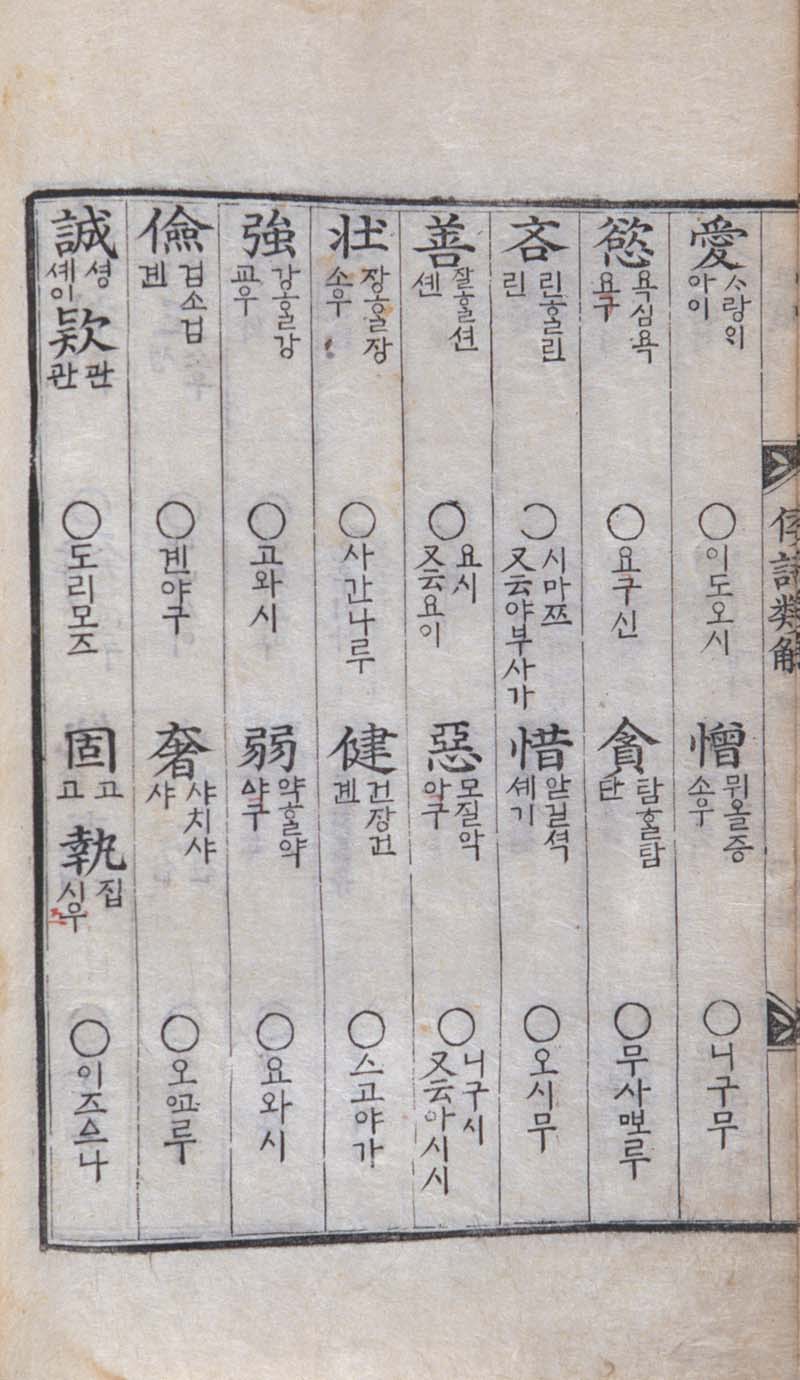 倭語類解
愛 ᄉᆞ랑ᄋᆡ 아이 ○이도오시 憎 뮈올증 소우 ○니구무
慾 욕심욕 요구 ○요구신 貪 탐ᄒᆞᆯ탐 단 ○무사ᄜᅩ루
吝 린ᄒᆞᆯ린 린 ○시마쯔 又云야부사가 惜 앗길셕 셰기 ○오시무
善 잘ᄒᆞᆯ션 셴 ○요시 又云요이 惡 모질악 아구 ○니구시 又云아시시
壯 장ᄒᆞᆯ장 소우 ○사간나루 健 건장건 겐 ○스고야가
強 강ᄒᆞᆯ강 교우 ○고와시 弱 약ᄒᆞᆯ약 샤구 ○요와시
儉 검소검 겐 ○겐야구 奢 샤치샤 샤 ○오ᅁᅩ루
誠 셩 셰이 欵 관 관 ○도리모즈 固 고 고 執 집 시우 ○이즈ᅀᅳ나